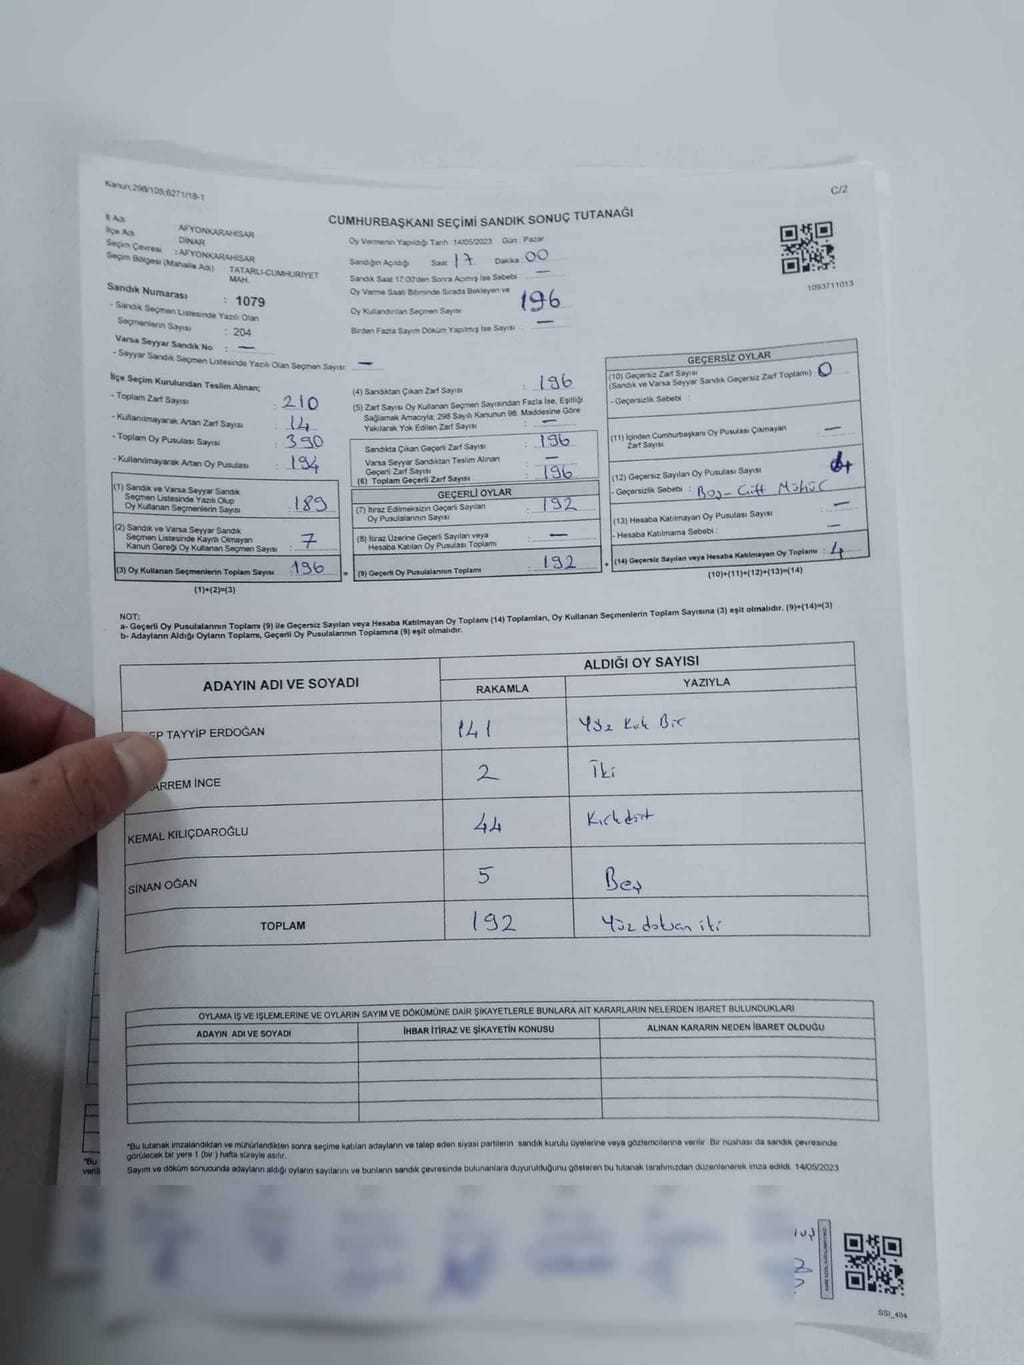 Kanun;298/105;6271/18-1
C/2
CUMHURBAŞKANI SEÇİMİ SANDIK SONUÇ TUTANAĞI
İl Adı AFYONKARAHİSAR
İlçe Adı DİNAR
Seçim Çevresi : AFYONKARAHİSAR
Seçim Bölgesi (Mahalle Adı) TATARLI-CUMHURİYET
MAH.
Sandık Numarası : 1079
- Sandık Seçmen Listesinde Yazılı Olan
Seçmenlerin Sayısı : 204
Varsa Seyyar Sandık No : —
- Seyyar Sandık Seçmen Listesinde Yazılı Olan Seçmen Sayısı: —
Oy Vermenin Yapıldığı Tarih 14/05/2023 Gün : Pazar
Sandığın Açıldığı Saat 17 Dakika 00
Sandık Saat 17:00'den Sonra Açılmış İse Sebebi —
Oy Verme Saati Bitiminde Sırada Bekleyen ve
Oy Kullandırılan Seçmen Sayısı 196
Birden Fazla Sayım Döküm Yapılmış İse Sayısı : —
1093711013
İlçe Seçim Kurulundan Teslim Alınan;
- Toplam Zarf Sayısı : 210
- Kullanılmayarak Artan Zarf Sayısı : 14
- Toplam Oy Pusulası Sayısı : 390
- Kullanılmayarak Artan Oy Pusulası : 194
(1) Sandık ve Varsa Seyyar Sandık
Seçmen Listesinde Yazılı Olup
Oy Kullanan Seçmenlerin Sayısı : 189
(2) Sandık ve Varsa Seyyar Sandık
Seçmen Listesinde Kayıtlı Olmayan
Kanun Gereği Oy Kullanan Seçmen Sayısı : 7
(3) Oy Kullanan Seçmenlerin Toplam Sayısı : 196
(1)+(2)=(3)
(4) Sandıktan Çıkan Zarf Sayısı : 196
(5) Zarf Sayısı Oy Kullanan Seçmen Sayısından Fazla İse, Eşitliği
Sağlamak Amacıyla; 298 Sayılı Kanunun 98. Maddesine Göre
Yakılarak Yok Edilen Zarf Sayısı : —
Sandıkta Çıkan Geçerli Zarf Sayısı : 196
Varsa Seyyar Sandıktan Teslim Alınan
Geçerli Zarf Sayısı : —
(6) Toplam Geçerli Zarf Sayısı : 196
GEÇERLİ OYLAR
(7) İtiraz Edilmeksizin Geçerli Sayılan
Oy Pusulalarının Sayısı : 192
(8) İtiraz Üzerine Geçerli Sayılan veya
Hesaba Katılan Oy Pusulası Toplamı : —
= (9) Geçerli Oy Pusulalarının Toplamı : 192
GEÇERSİZ OYLAR
(10) Geçersiz Zarf Sayısı
(Sandık ve Varsa Seyyar Sandık Geçersiz Zarf Toplamı) : 0
- Geçersizlik Sebebi :
(11) İçinden Cumhurbaşkanı Oy Pusulası Çıkmayan
Zarf Sayısı : —
(12) Geçersiz Sayılan Oy Pusulası Sayısı : 4
- Geçersizlik Sebebi : Boş - Çift Mühür
(13) Hesaba Katılmayan Oy Pusulası Sayısı : —
- Hesaba Katılmama Sebebi : —
+ (14) Geçersiz Sayılan veya Hesaba Katılmayan Oy Toplamı : 4
(10)+(11)+(12)+(13)=(14)
NOT:
a- Geçerli Oy Pusulalarının Toplamı (9) ile Geçersiz Sayılan veya Hesaba Katılmayan Oy Toplamı (14) Toplamları, Oy Kullanan Seçmenlerin Toplam Sayısına (3) eşit olmalıdır. (9)+(14)=(3)
b- Adayların Aldığı Oyların Toplamı, Geçerli Oy Pusulalarının Toplamına (9) eşit olmalıdır.
ADAYIN ADI VE SOYADI ALDIĞI OY SAYISI
RAKAMLA YAZIYLA
EP TAYYİP ERDOĞAN 141 Yüz Kırk Bir
ARREM İNCE 2 İki
KEMAL KILIÇDAROĞLU 44 Kırkdört
SİNAN OĞAN 5 Beş
TOPLAM 192 Yüz doksan iki
OYLAMA İŞ VE İŞLEMLERİNE VE OYLARIN SAYIM VE DÖKÜMÜNE DAİR ŞİKAYETLERLE BUNLARA AİT KARARLARIN NELERDEN İBARET BULUNDUKLARI
ADAYIN ADI VE SOYADI İHBAR İTİRAZ VE ŞİKAYETİN KONUSU ALINAN KARARIN NEDEN İBARET OLDUĞU
*Bu tutanak imzalandıktan ve mühürlendikten sonra seçime katılan adayların ve talep eden siyasi partilerin sandık kurulu üyelerine veya gözlemcilerine verilir. Bir nüshası da sandık çevresinde
görülecek bir yere 1 (bir ) hafta süreyle asılır.
Sayım ve döküm sonucunda adayların aldığı oyların sayılarını ve bunların sandık çevresinde bulunanlara duyurulduğunu gösteren bu tutanak tarafımızdan düzenlenerek imza edildi. 14/05/2023
*Bu
SSI_404